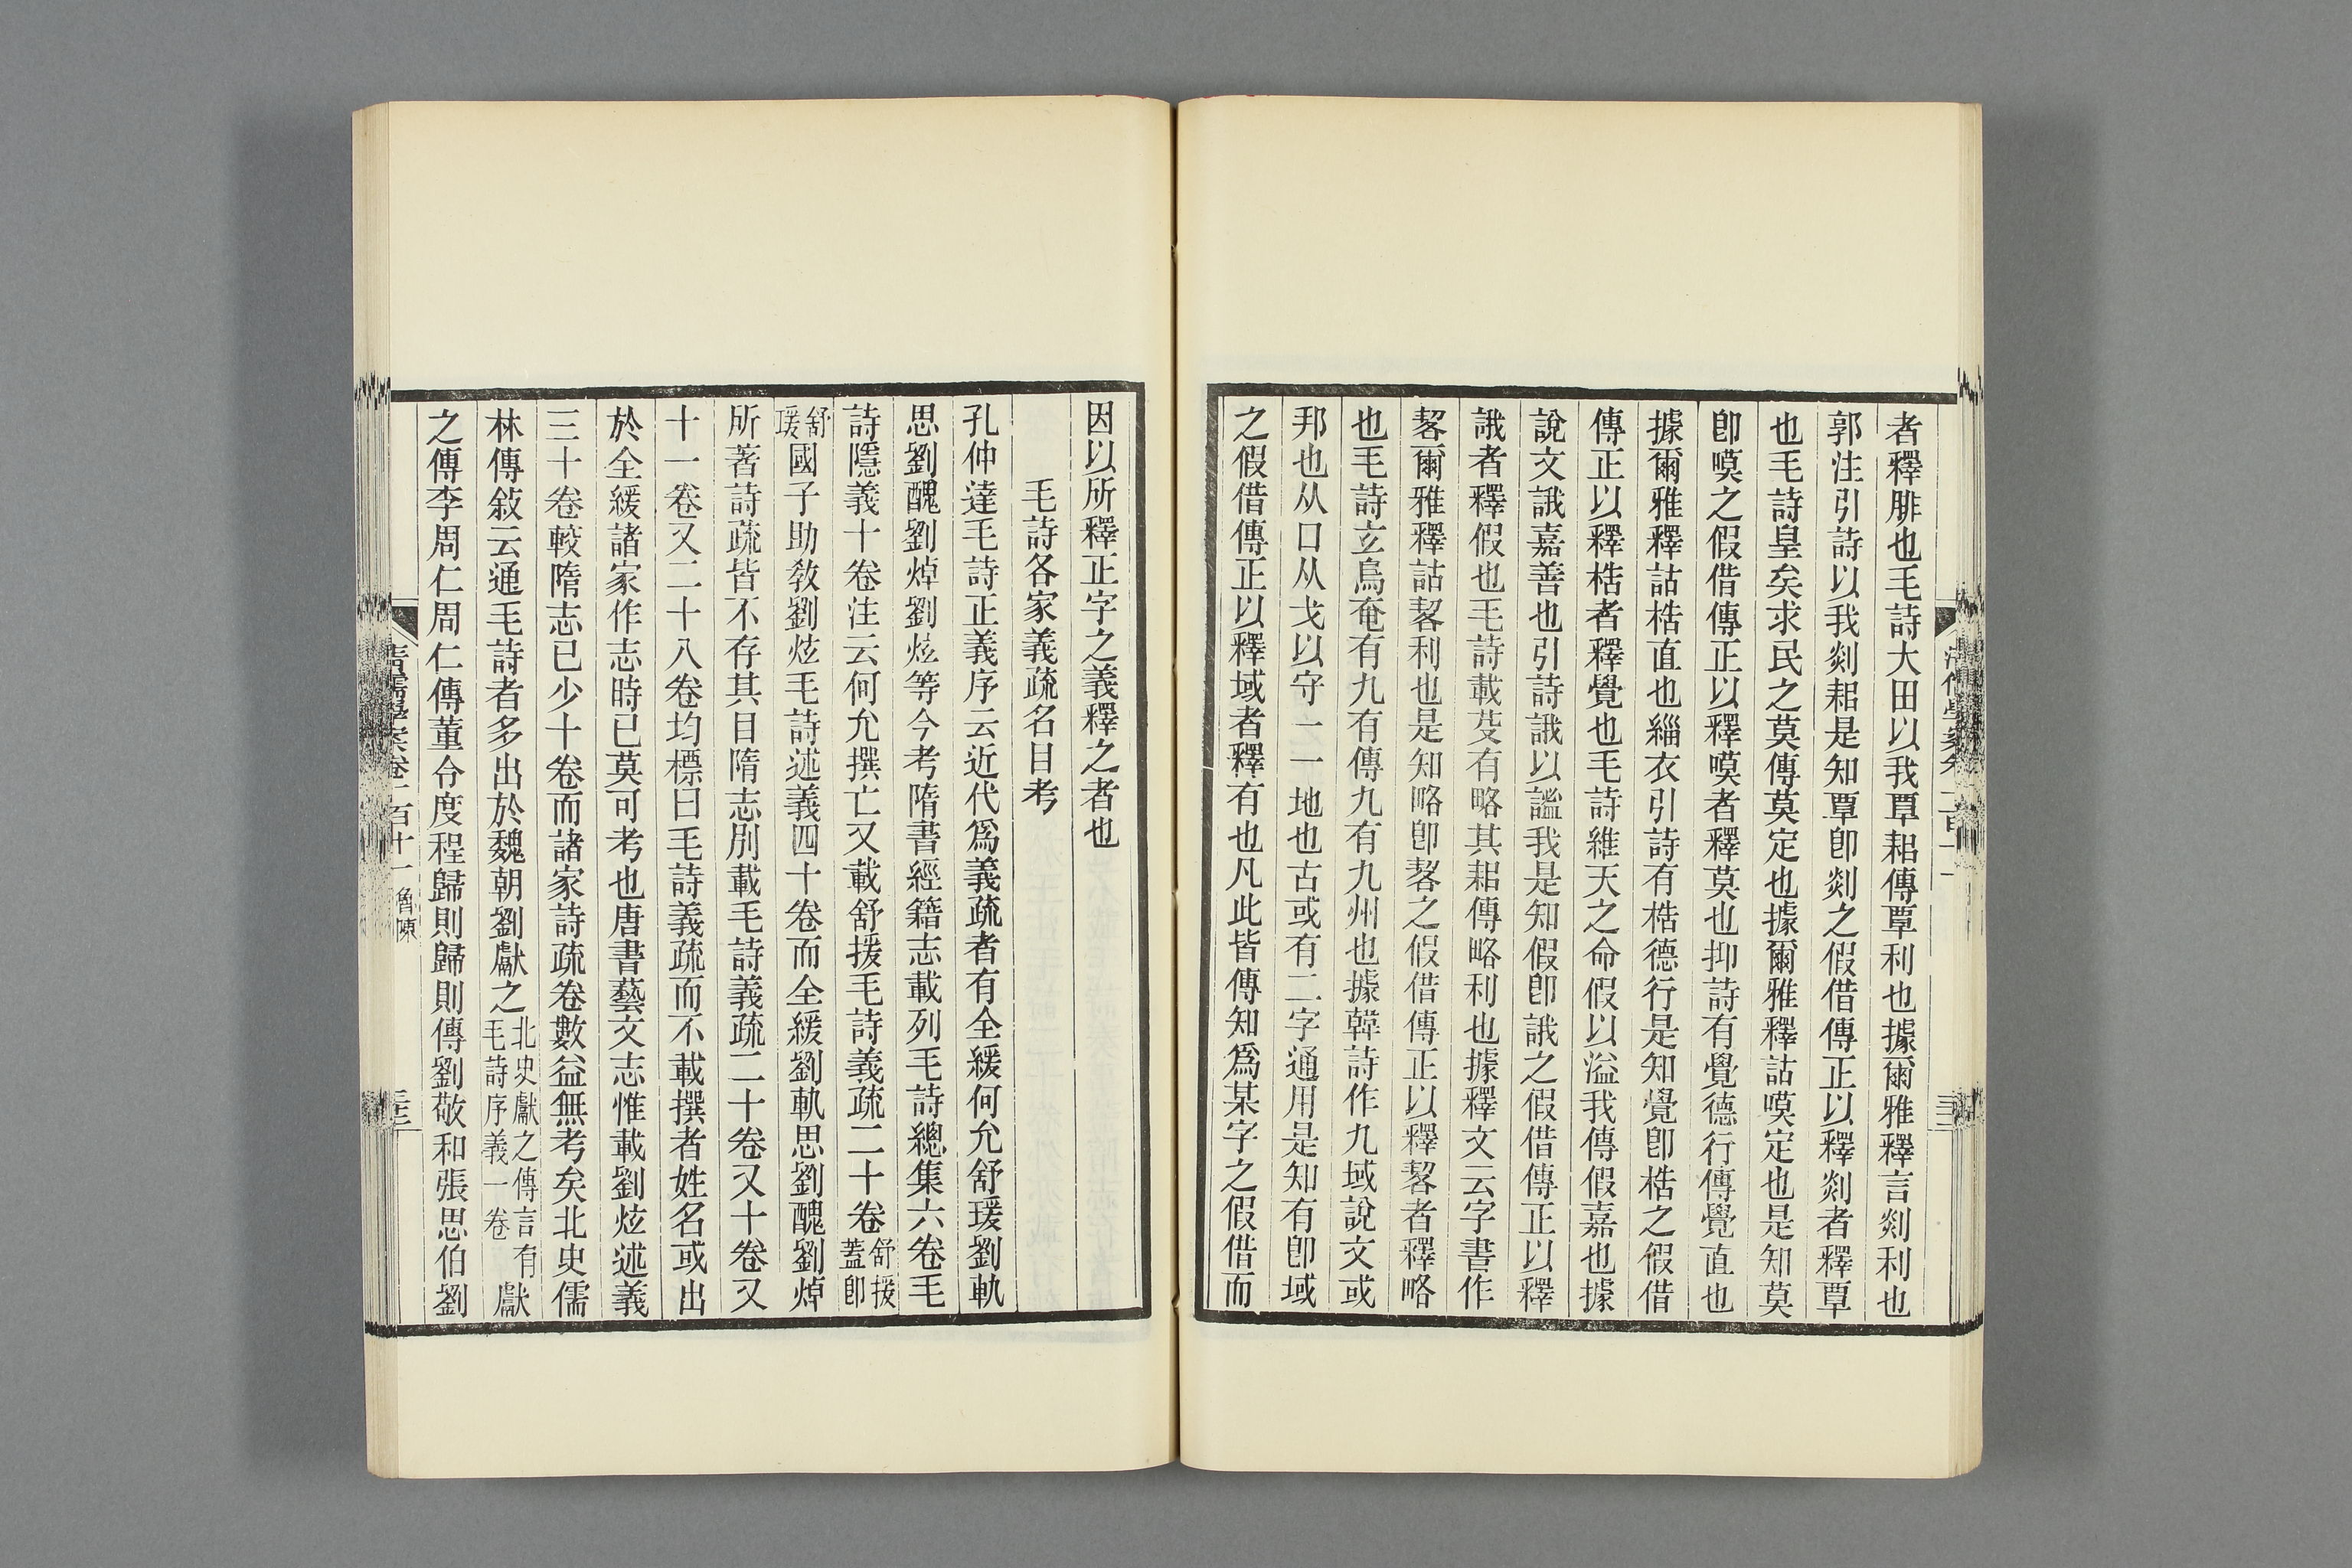 者釋腓也毛詩大田以我覃耜傳覃利也據爾雅釋言剡利也
郭注引詩以我剡耜是知覃卽剡之假借傳正以釋剡者釋覃
也毛詩皇矣求民之莫傳莫定也據爾雅釋詁嗼定也是知莫
卽嗼之假借傳正以釋嗼者釋莫也抑詩有覺德行傳覺直也
據爾雅釋詁梏直也緇衣引詩有梏德行是知覺卽梏之假借
傳正以釋梏者釋覺也毛詩維天之命假以溢我傳假嘉也據
說文誐嘉善也引詩誐以謐我是知假卽誐之假借傳正以釋
誐者釋假也毛詩載芟有略其耜傳略利也據釋文云字書作
䂮爾雅釋詁䂮利也是知略卽䂮之假借傳正以釋䂮者釋略
也毛詩玄鳥奄有九有傳九有九州也據韓詩作九域說文或
邦也从口从戈以守一一地也古或有二字通用是知有卽域
之假借傳正以釋域者釋有也凡此皆傳知爲某字之假借而
因以所釋正字之義釋之者也
毛詩各家義疏名目考
孔仲達毛詩正義序云近代爲義疏者有全緩何允舒瑗劉軌
思劉醜劉焯劉炫等今考隋書經籍志載列毛詩總集六卷毛
詩隱義十卷注云何允撰亡又載舒援毛詩義疏二十卷舒援蓋卽
舒瑗國子助敎劉炫毛詩述義四十卷而全緩劉軌思劉醜劉焯
所著詩疏皆不存其目隋志別載毛詩義疏二十卷又十卷又
十一卷又二十八卷均標曰毛詩義疏而不載撰者姓名或出
於全緩諸家作志時已莫可考也唐書藝文志惟載劉炫述義
三十卷較隋志已少十卷而諸家詩疏卷數益無考矣北史儒
林傳敍云通毛詩者多出於魏朝劉獻之北史獻之傳言有毛詩序義一卷獻
之傳李周仁周仁傳董令度程歸則歸則傳劉敬和張思伯劉
清儒學案卷二百十一 魯陳